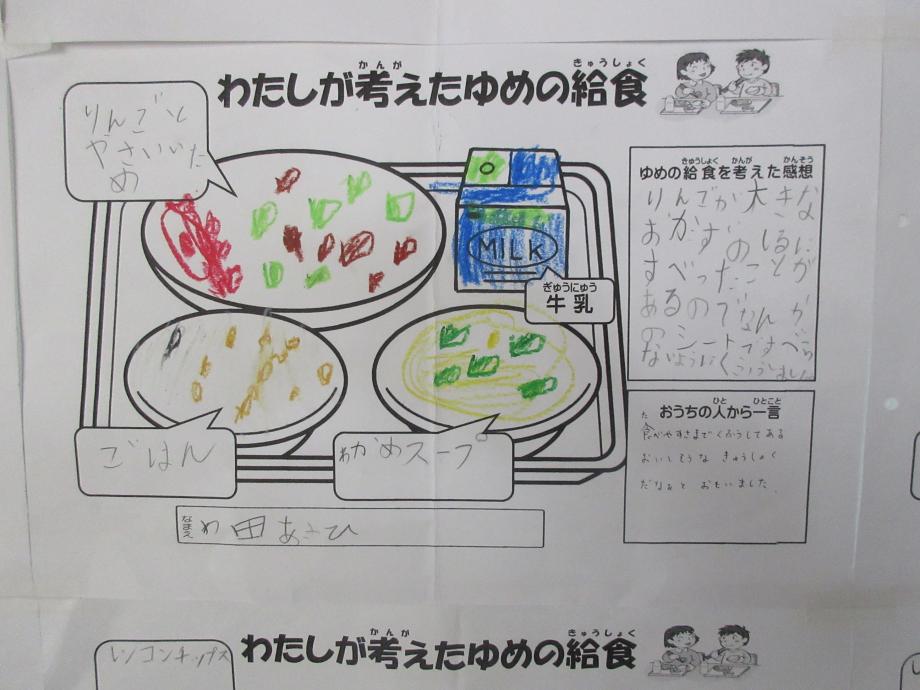 わたしが考えたゆめの給食
かんが
きゅうしょく
りんごと
やさいいため
ゆめの給食を考えた感想
きゅうしょく
かんが
かんそう
りんごか大きな
おかずのしるに
すべったことが
あるのでなんか
のシートですべら
ないようにくふうしました
MILK
ぎゅうにゅう
牛乳
ごはん
わかめスープ
おうちの人から一言
ひと
ひとこと
た
食べやすさまでくふうしてある
おいしそうな きゅうしょく
だなぁと おもいました。
なまえ
田あさひ
レンコンチップス
わたしが考えたゆめの給食
かんが
きゅうしょく